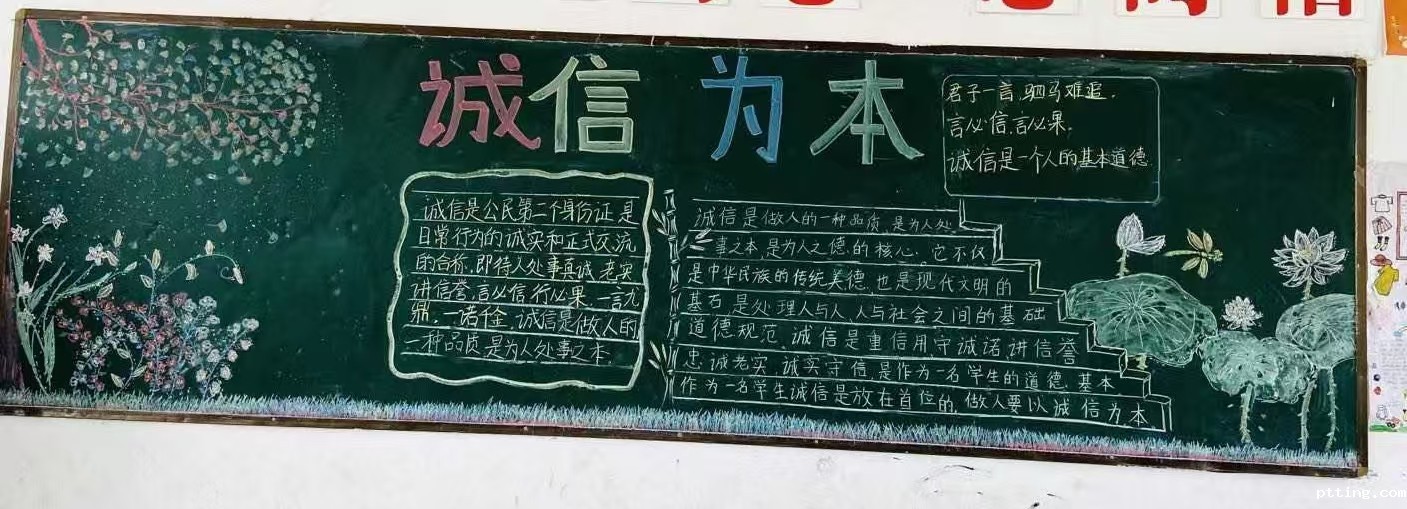 诚信为本
君子一言,驷马难追.
言必信,言必果.
诚信是一个人的基本道德
诚信是公民第二个身份证是
日常行为的诚实和正式交流
的合称.即待人处事真诚、老实
讲信誉,言必信行必果,一言九
鼎,一诺千金.诚信是做人的
一种品质是为人处事之本
诚信是做人的一种品质,是为人处
事之本,是为人之德的核心.它不仅
是中华民族的传统美德.也是现代文明的
基石.是处理人与人、人与社会之间的基础
道德规范.诚信是重信用、守诚诺、讲信誉
忠、诚老实、诚实守信,是作为一名学生的道德、基本
作为一名学生诚信是放在首位的,做人要以诚信为本
ptting.com